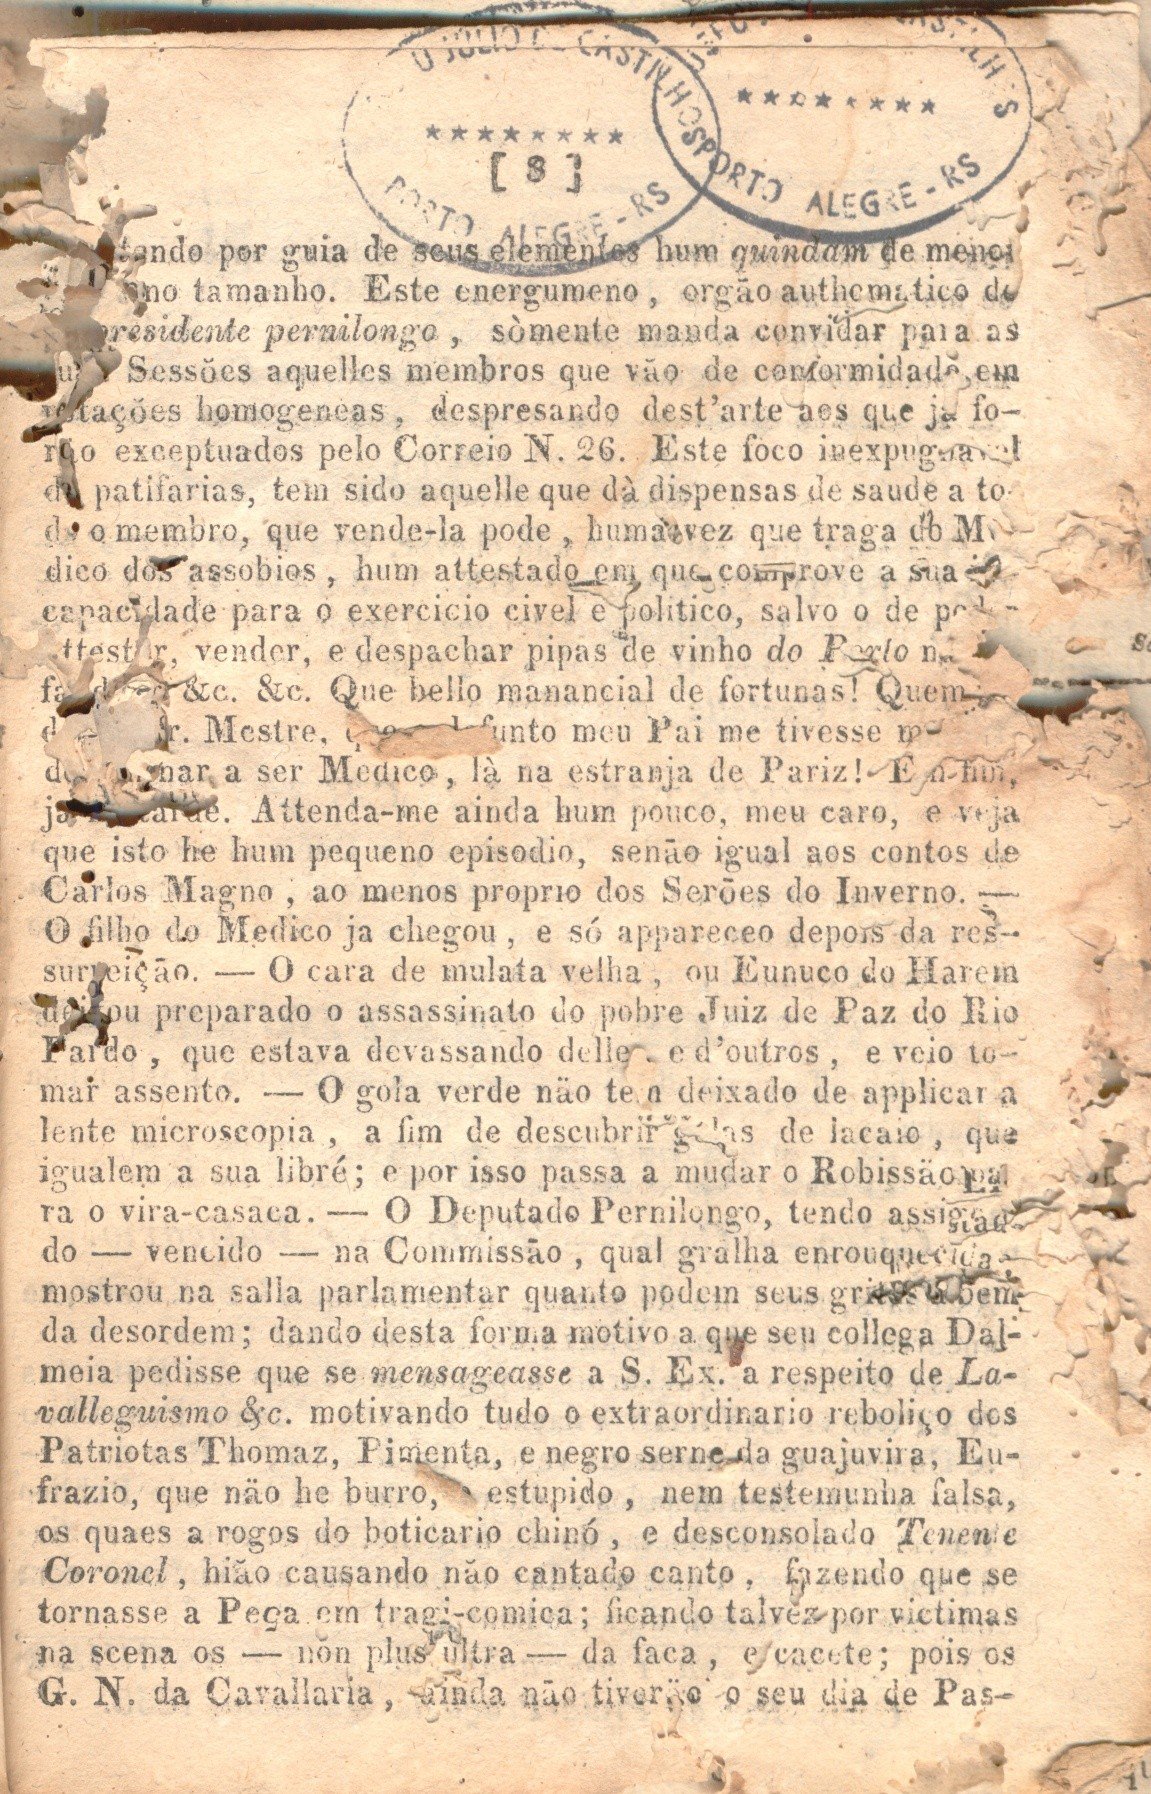 O JULIO DE CASTILHOS
PORTO ALEGRE - RS
PORTO ALEGRE - RS
[ 8 ]
tendo por guia de seus elementos hum quindam de menor
tamanho. Este energumeno, orgão authomatico do
presidente pernilongo, sòmente manda convidar para as
suas Sessões aquelles membros que vão de conformidade em
votações homogeneas, despresando dest'arte aos que ja fo-
rão exceptuados pelo Correio N. 26. Este foco inexpugnavel
de patifarias, tem sido aquelle que dà dispensas de saude a to-
do o membro, que vende-la pode, huma vez que traga do Me-
dico dos assobios, hum attestado em que comprove a sua in-
capacidade para o exercicio civel e politico, salvo o de poder
attestar, vender, e despachar pipas de vinho do Porto
&c. &c. Que bello manancial de fortunas! Quem
Mestre, defunto meu Pai me tivesse
a ser Medico, là na estranja de Pariz! Em fim,
ja he tarde. Attenda-me ainda hum pouco, meu caro, e veja
que isto he hum pequeno episodio, senão igual aos contos de
Carlos Magno, ao menos proprio dos Serões do Inverno. —
O filho do Medico ja chegou, e só appareceo depois da res-
surreição. — O cara de mulata velha, ou Eunuco do Harem
deixou preparado o assassinato do pobre Juiz de Paz do Rio
Pardo, que estava devassando delle, e d'outros, e veio to-
mar assento. — O gola verde não tem deixado de applicar a
lente microscopia, a fim de descubrir golas de lacaio, que
igualem a sua libré; e por isso passa a mudar o Robissão pa-
ra o vira-casaca. — O Deputado Pernilongo, tendo assigna-
do — vencido — na Commissão, qual gralha enrouquecida,
mostrou na salla parlamentar quanto podem seus gritos a bem
da desordem; dando desta forma motivo a que seu collega Dal-
meia pedisse que se mensageasse a S. Ex. a respeito de La-
valleguismo &c. motivando tudo o extraordinario reboliço dos
Patriotas Thomaz, Pimenta, e negro serne da guajuvira, Eu-
frazio, que não he burro, estupido, nem testemunha falsa,
os quaes a rogos do boticario chinó, e desconsolado Tenente
Coronel, hião causando não cantado canto, fazendo que se
tornasse a Peça em tragi-comica; ficando talvez por victimas
na scena os — nòn plus ultra — da faca, e cacete; pois os
G. N. da Cavallaria, ainda não tiverão o seu dia de Pas-